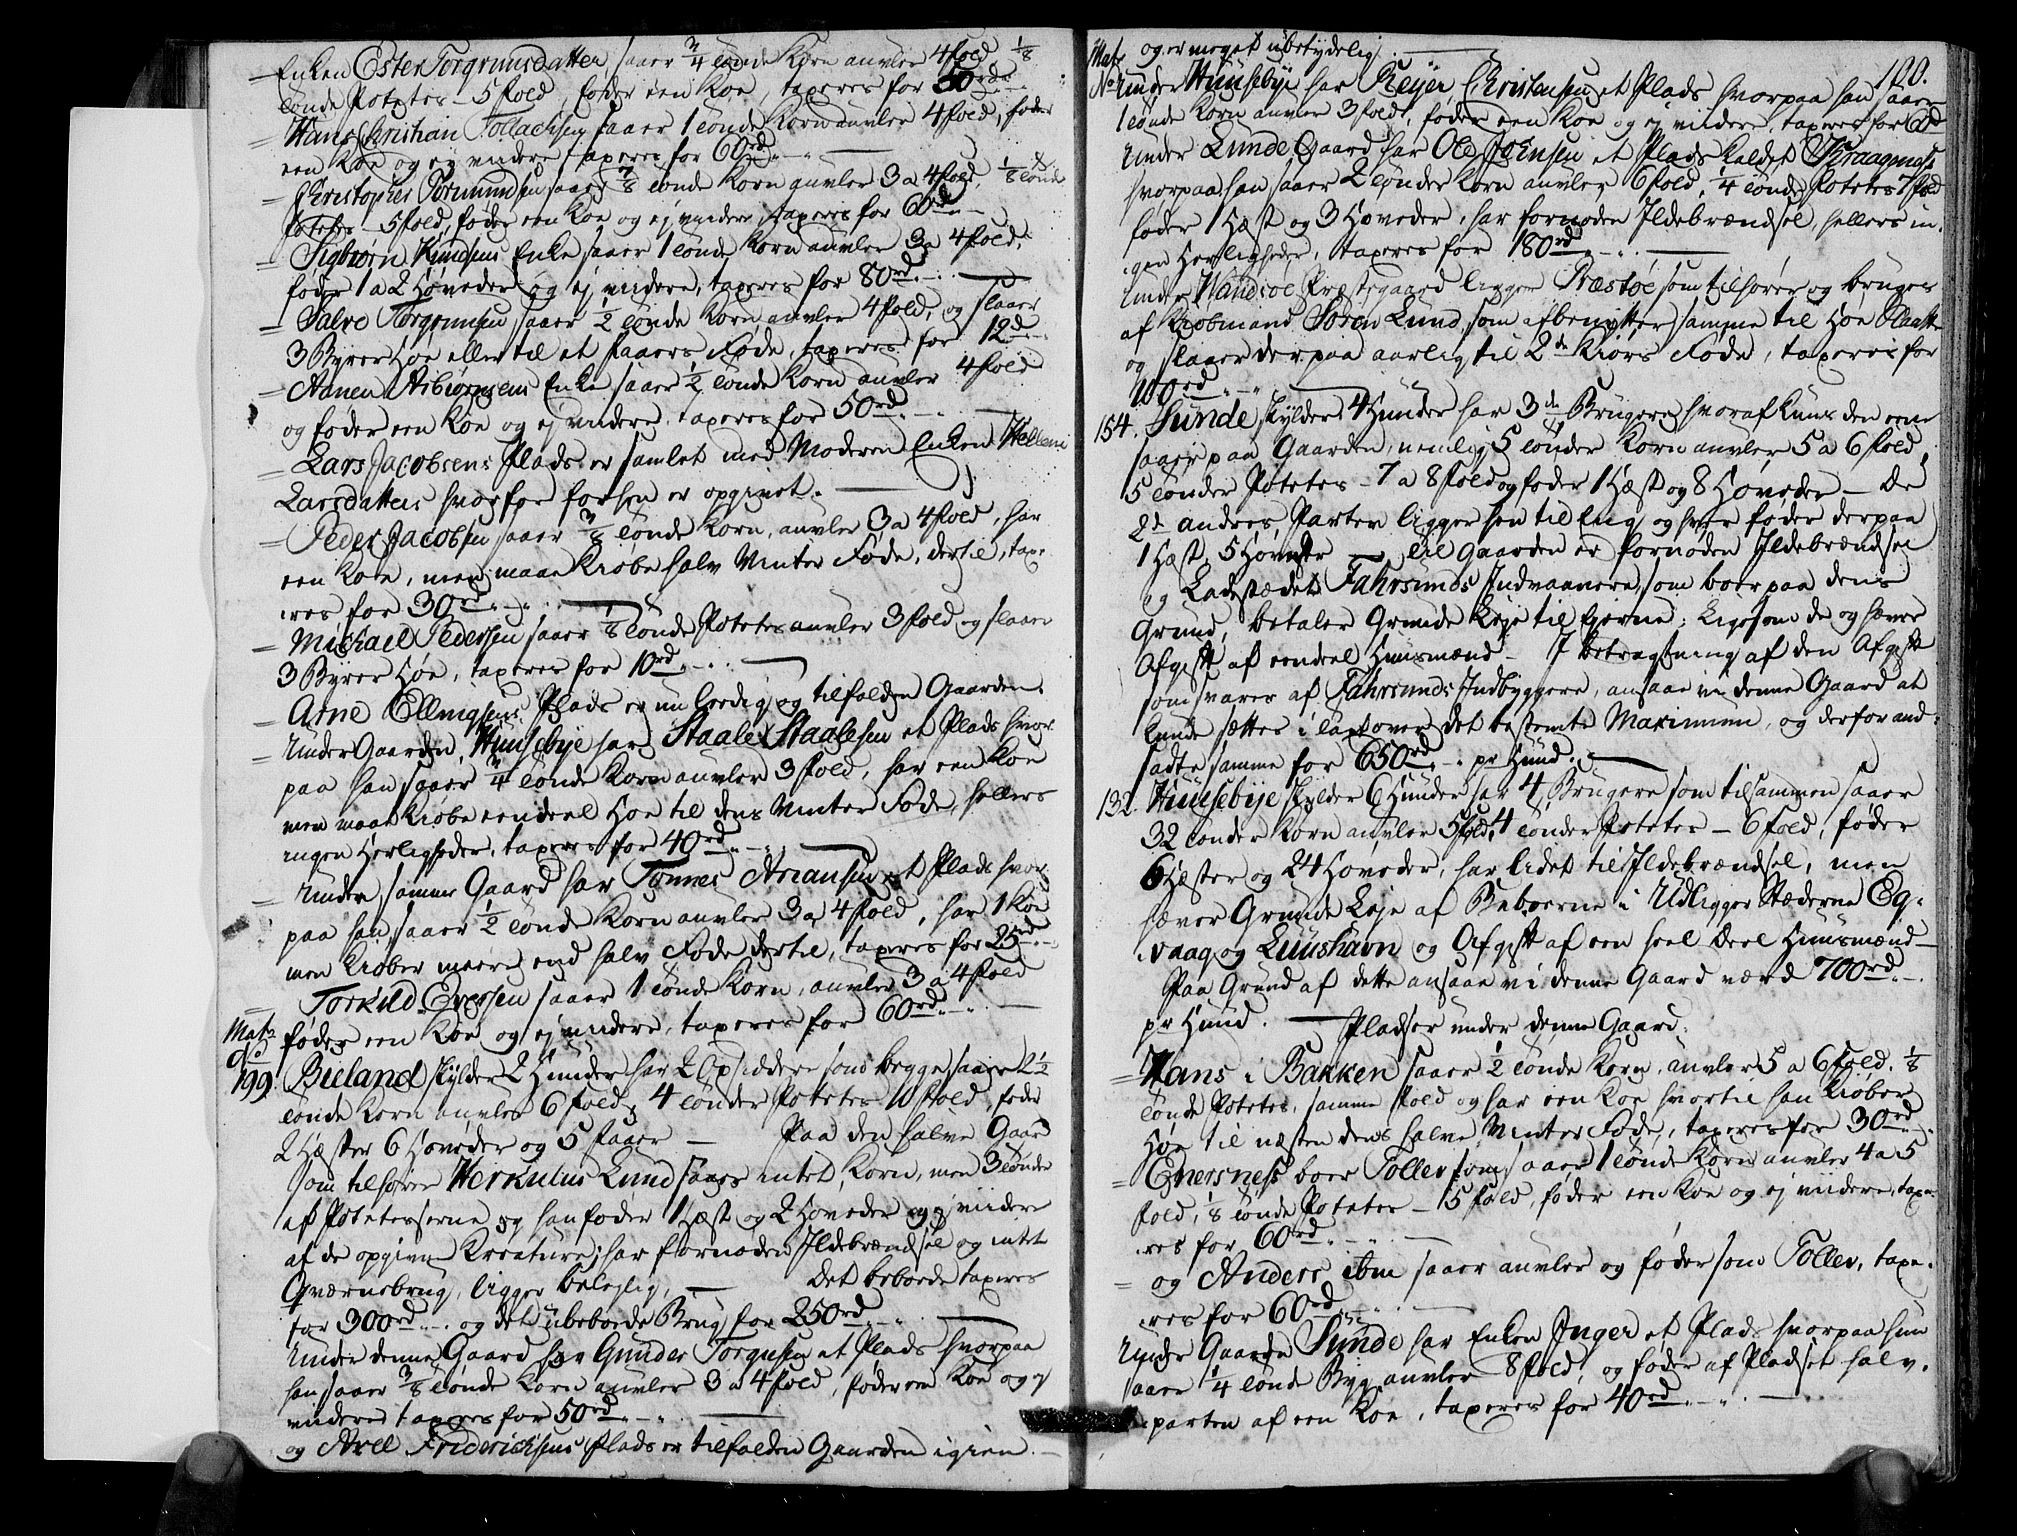 Enken Ester Torgrunsdatter saaer 3/4 tønde Korn anvler 4 fold 1/8
tønde Potetes - 5 fold, føder een Koe, taxeres for 50 rd
= Hans Christian Tollachsen saaer 1 tønde Korn anvler 4 fold, føder
een Koe og ej videre taxeres for 60 rd
= Christopher Tormundsen saaer 7/8 tønde Korn anvler 3 a 4 fold, 1/8 tønde
Potetes - 5 fold, føder een Koe og ej videre taxeres for 60 rd
= Sigbiørn Knudsens Enke saaer 1 tønde Korn anvler 3 a 4 fold,
føder 1 a 2 Høveder og ej videre, taxeres for 80 rd
= Salve Torgrimsen saaer 1/2 tønde Korn anvler 4 fold, og slaaer
3 Byrer Høe eller til et faaers Føde, taxeres for 12 d
= Aanen Asbiørnsens Enke saaer 1/2 tønde Korn anvler 4 fold
og føder een Koe og ej videre, taxeres for 50 rd
= Lars Jacobsens Plads er samlet med Moderen Enken Helleni
Larsdatters hvorfor forhen er opgivet.
= Peder Jacobsen saaer 3/8 tønde Korn, anvler 3 a 4 fold, har
een Koe, men maae kiøbe halv Vinter Føde, dertil, taxe-
res for 30 rd
= Michael Pedersen saaer 1/8 tønde Potetes anvler 3 fold og slaaer
3 Byrer Høe, taxeres for 10 rd
= Arne Ellingsens Plads er nu leedig og tilfalden Gaarden.
= Under Gaarden Huusebye har Staale Staalesen et Plads hvor-
paa han saaer 3/4 tønde Korn anvler 3 fold, har een Koe
men maae kiøbe eendeel Høe til dens Vinter Føde, hellers
ingen Herligheder, taxeres for 40 rd
= Under samme Gaard har Tønnes Ariansen et Plads hvor-
paa han saaer 1/2 tønde Korn anvler 3 a 4 fold, har 1 Koe
men kiøber meere end halv Føde dertil, taxeres for 25 rd
= Torkild Eversen saaer 1 tønde Korn, anvler 3 a 4 fold
føder een Koe og ej videre, taxeres for 60 rd
Matr
No
199. Bieland skylder 2 Hunder har 2 Opsiddere som begge saaer 2 1/2
tønde Korn anvler 6 fold, 4 tønder Potetes 10 fold, føder
2 Hæster 6 Høveder og 5 faaer — Paa den halve Gaard
som tilhører Herkulus Lund saaes intet Korn, men 3 tønder
af Potetesserne og han føder 1 Hæst og 2 Høveder og ej videre
af de opgivne Kreature; har fornøden Ildebrændsel og intet
Qværnebrug, ligger beleylig, — Det beboede taxeres
for 300 rd og det ubeboede Brug for 250 rd
Under denne Gaard har Gunder Torgusen et Plads hvorpaa
han saaer 3/8 tønde Korn anvler 3 a 4 fold, føder een Koe og ej
videre taxeres for 50 rd
og Axel Friderichsens Plads er tilfalden Gaarden igien.
og er meget ubetydelig.
100.
Matr
No Under Huusebye har Reyer Christensen et Plads hvorpaa han saaer
1 tønde Korn anvler 3 fold, føder een Koe og ej videre, taxeres for 60 rd
Under Lunde Gaard har Ole Jørnsen et Plads kaldet Kraagenes
hvorpaa han saaer 2 tønder Korn anvler 6 fold, 1/4 tønde Potetes 7 fold
føder 1 Hæst og 3 Høveder, har fornøden Ildebrændsel, hellers in-
gen Herligheder, taxeres for 180 rd
Under Wandsøe Præstegaard ligger Præstøe som tilhører og bruges
af Kiøbmand Søren Lund, som afbenytter samme til Høe Slaatte
og slaaer derpaa aarlig til 2de Kiørs Føde, taxeres for
100 rd
154. Sunde skylder 4 Hunder har 3de Brugere hvoraf kuns den eene
saaer paa Gaarden, nemlig 5 tønder Korn anvler 5 a 6 fold,
5 tønder Potetes - 7 a 8 fold og føder 1 Hæst og 8 Høveder — De
2de andres Parter ligger hen til Eng og hver føder derpaa
1 Hæst 5 Høveder — Til Gaarden er fornøden Ildebrændsel
og Ladestædet Fahrsunds Indvaanere, som boer paa dens
Grund, betaler Grunde Leje til Ejerne; ligesom de og hæver
Afgift af eendeel Huusmænd — I betragtning af den Afgift
som svares af Fahrsunds Indbyggere, ansaae vi denne Gaard at
kunde sættes i taxt over det bestemte Maximum, og derfor and-
sadte samme for 650 rd pr Hund.
132. Huusebye skylder 6 Hunder har 4 Brugere som tilsammen saaer
32 tønder Korn anvler 5 fold, 4 tønder Potetes — 6 fold, føder
6 Hæster og 24 Høveder, har lidet til Ildebrændsel, men
hæver Grunde Leje af Beboerne i Udligger Stæderne Eg-
vaag og Luushavn og Afgift af een heel Deel Huusmænd —
Paa Grund af dette ansaae vi denne Gaard værd 700 rd
pr Hund. — Pladser under denne Gaard.
= Hans i Bakken saaer 1/2 tønde Korn, anvler 5 a 6 fold. 1/8
tønde Potetes, samme fold og har een Koe hvortil han kiøber
Høe til næsten dens halve Vinter Føde, taxeres for 30 rd
= Enersness boer Tollev som saaer 1 tønde Korn anvler 4 a 5
fold, 1/8 tønde Potetes — 15 fold, føder een Koe og ej videre, taxe-
res for 60 rd
= og Anders ibm saaer anvler og føder som Tollev, taxe-
res for 60 rd
Under Gaarden Sunde har Enken Inger et Plads hvorpaa hun
saaer 1/4 tønde Byg anvler 8 fold, og føder af Pladset halv-
parten af een Koe, taxeres for 40 rd